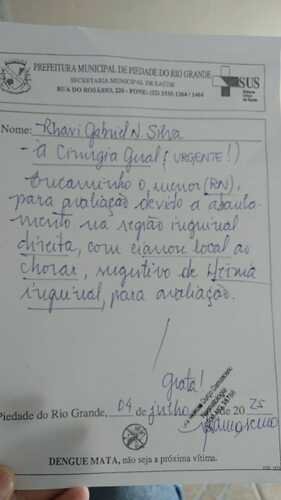 PREFEITURA MUNICIPAL DE PIEDADE DO RIO GRANDE
SECRETARIA MUNICIPAL DE SAÚDE
RUA DO ROSÁRIO, 220 - FONE: (32) 3335 1264 / 1464
SUS
Nome: Rhavi Gabriel N Silva
- À Cirurgia Geral (URGENTE!)
Encaminho o menor (RN),
para avaliação devido a abaula-
mento na região inguinal
direita, com cianose local ao
chorar, sugestivo de Hérnia
inguinal, para avaliação.
Grata!
Piedade do Rio Grande, 04 de julho de 2025
DENGUE MATA, não seja a próxima vítima.